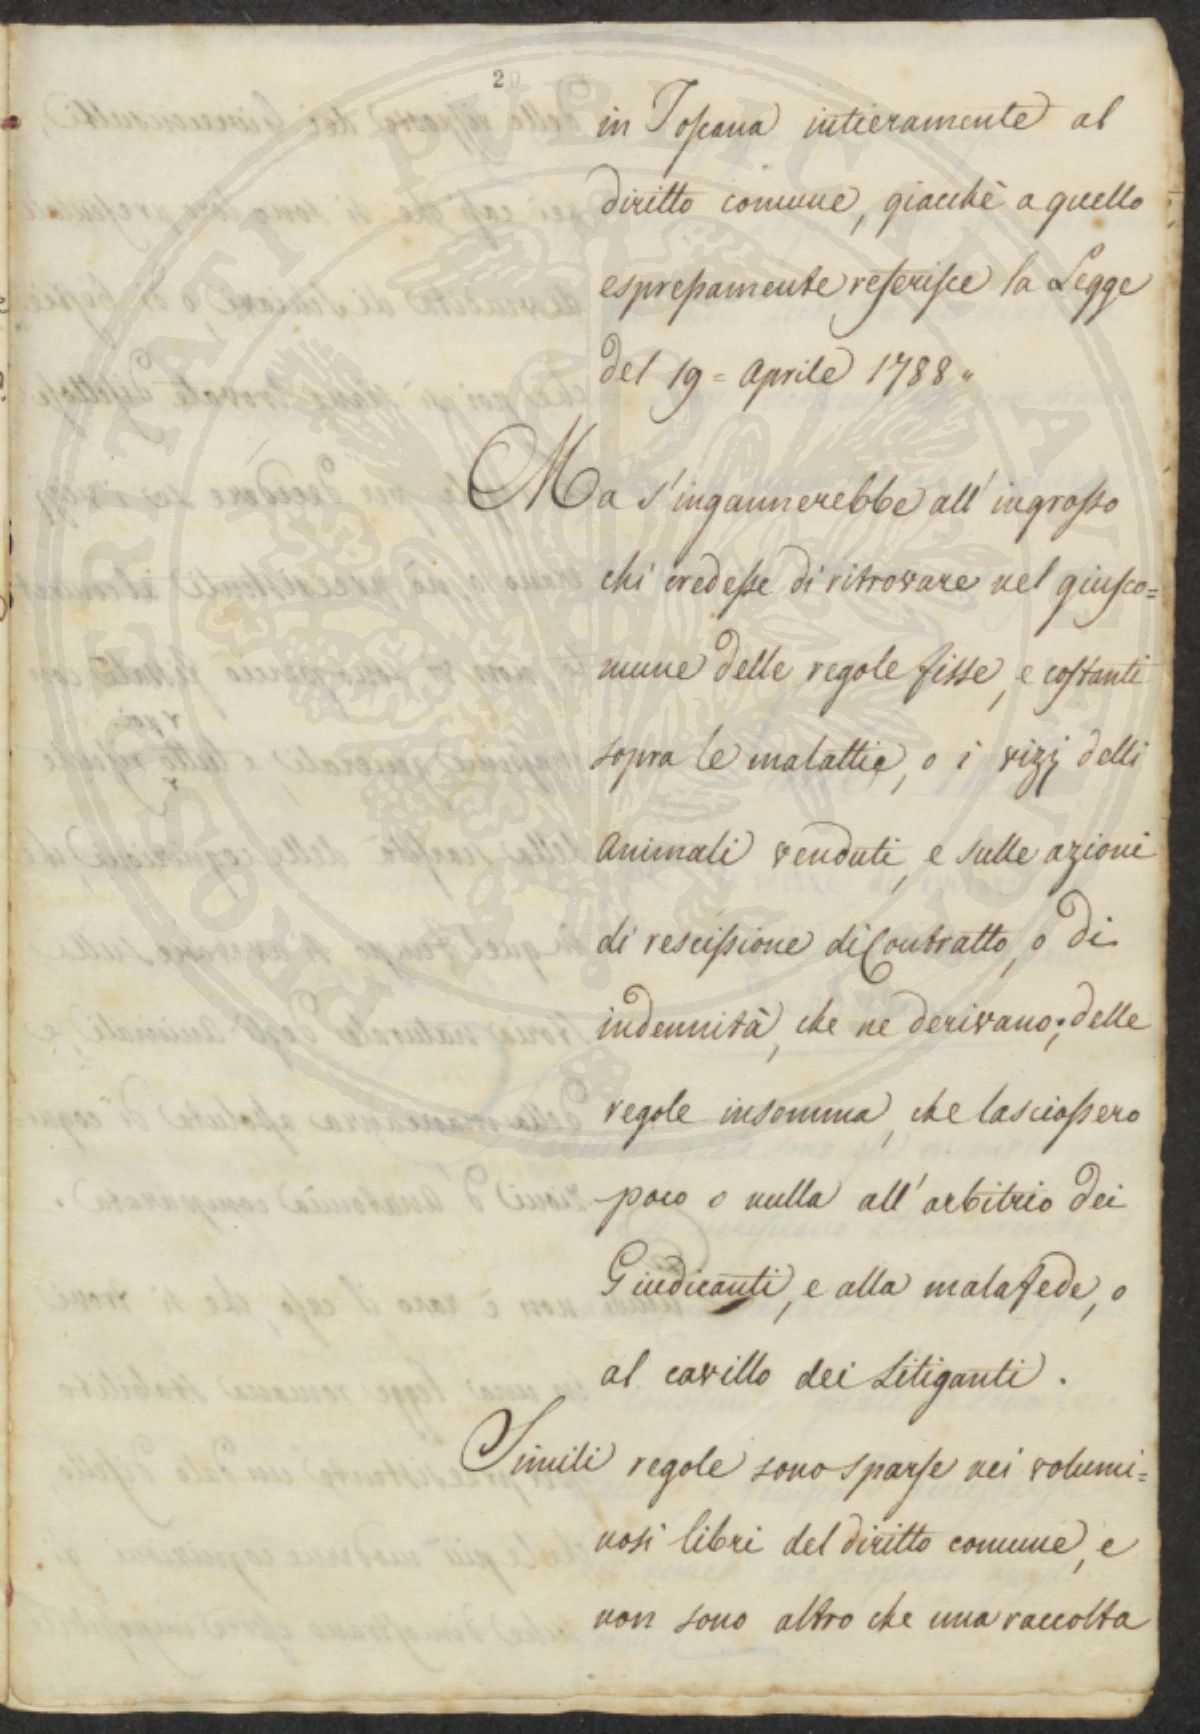 20
in Toscana intieramente al
diritto comune, giacchè a quello
espressamente referisce la Legge
del 19 = Aprile 1788 „
Ma s'ingannerebbe all'ingrosso
chi credesse di ritrovare nel giusco=
mune delle regole fisse, e costanti
sopra le malattie, o i vizj delli
animali venduti, e sulle azioni
di rescissione di Contratto, o di
indennità, che ne derivano; delle
regole insomma, che lasciassero
poco o nulla all'arbitrio dei
Giudicanti, e alla malafede, o
al cavillo dei Litiganti.
Simili regole sono sparse nei volumi=
nosi libri del diritto comune, e
non sono altro che una raccolta